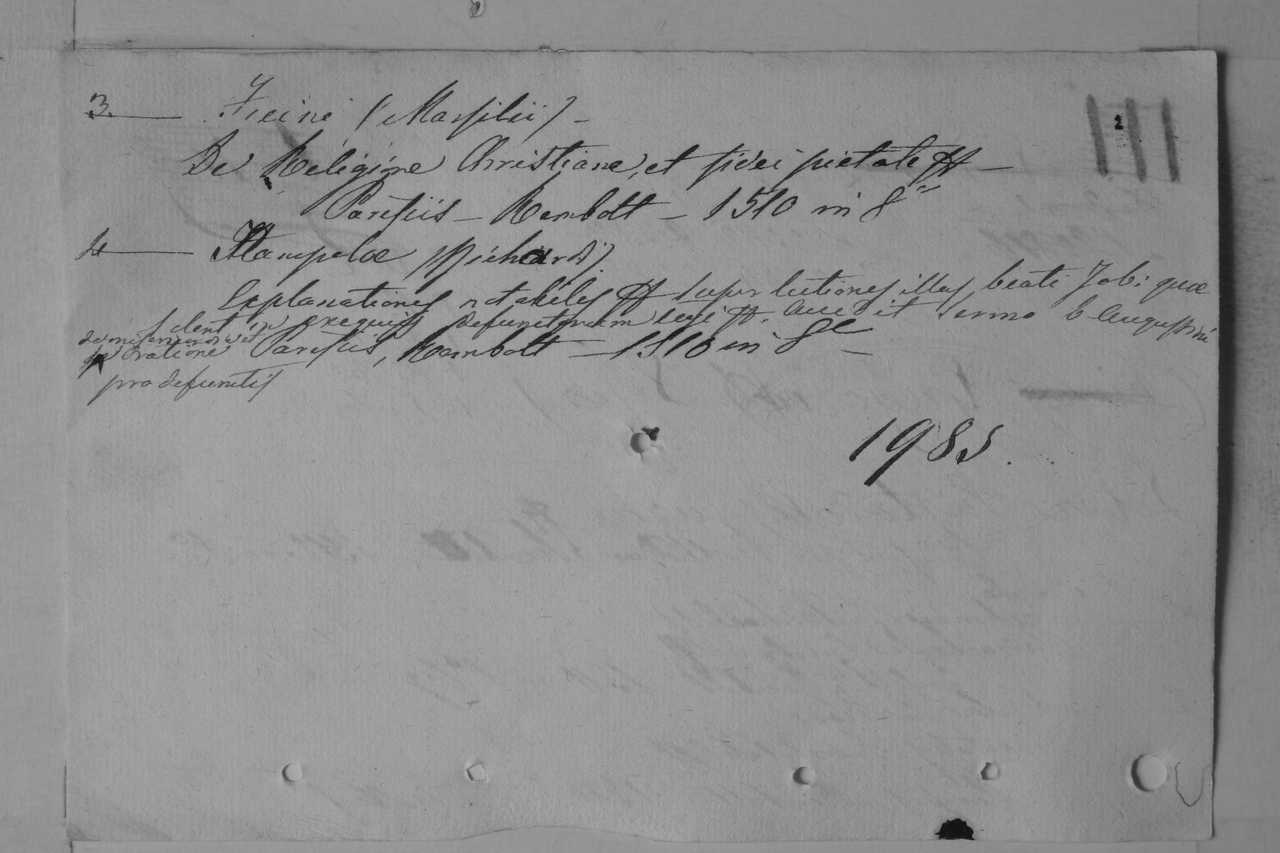 3. Ficini (Marsilii) -
2
De Religione Christiana, et fidei pietate ff -
Parisiis - Rembolt - 1510 in 8°
4 Hampolae (Richardi)
Explanationes notabiles ff super lectiones illas beati Jobi quae
solent in exequiis defunctorum legi ff. Accedit sermo b. Augustini
de misericordia et
oratione
Parisiis, Rembolt - 1510 in 8° -
pro defunctis
1985.